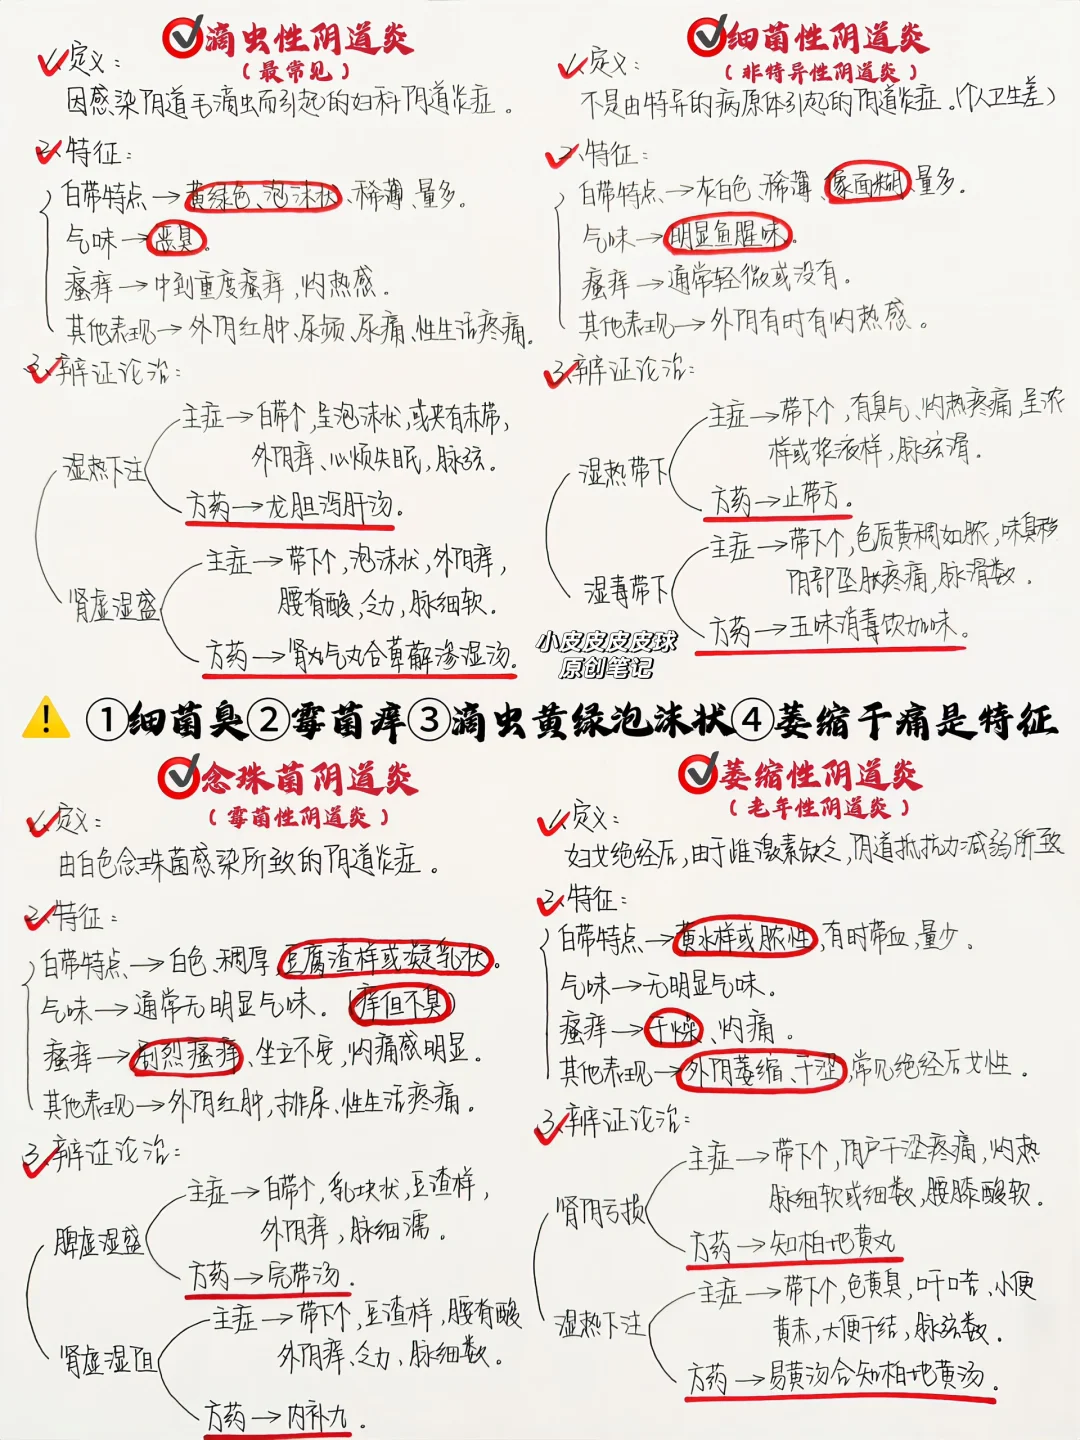 滴虫性阴道炎
（最常见）
1、定义：
因感染阴道毛滴虫而引起的妇科阴道炎症。
2、特征：
白带特点→黄绿色、泡沫状、稀薄、量多。
气味→恶臭。
瘙痒→中到重度瘙痒，灼热感。
其他表现→外阴红肿、尿频、尿痛、性生活疼痛。
3、辨证论治：
湿热下注
主症→白带个，呈泡沫状，或夹有赤带，
外阴痒、心烦失眠，脉弦。
方药→龙胆泻肝汤。
肾虚湿盛
主症→带下个，泡沫状，外阴痒，
腰有酸，乏力，脉细软。
方药→肾气丸合萆薢渗湿汤。
细菌性阴道炎
（非特异性阴道炎）
1、定义：
不是由特异的病原体引起的阴道炎症。（个人卫生差）
2、特征：
白带特点→灰白色、稀薄、像面糊、量多。
气味→明显鱼腥味。
瘙痒→通常轻微或没有。
其他表现→外阴有时有灼热感。
3、辨证论治：
湿热带下
主症→带下个，有臭气、灼热疼痛，呈浓
样或浆液样，脉弦滑。
方药→止带方。
湿毒带下
主症→带下个，色质黄稠如脓，味臭秽
阴部坠胀疼痛，脉滑数。
方药→五味消毒饮加味。
小皮皮皮皮球
原创笔记
①细菌臭②霉菌痒③滴虫黄绿泡沫状④萎缩干痛是特征
念珠菌阴道炎
（霉菌性阴道炎）
1、定义：
由白色念珠菌感染所致的阴道炎症。
2、特征：
白带特点→白色、稠厚，豆腐渣样或凝乳状。
气味→通常无明显气味。（痒但不臭）
瘙痒→剧烈瘙痒、坐立不安，灼痛感明显。
其他表现→外阴红肿，排尿、性生活疼痛。
3、辨证论治：
脾虚湿盛
主症→白带个，乳块状，豆渣样，
外阴痒，脉细濡。
方药→完带汤。
肾虚湿阻
主症→带下个，豆渣样，腰有酸
外阴痒、乏力、脉细数。
方药→内补丸。
萎缩性阴道炎
（老年性阴道炎）
1、定义：
妇女绝经后，由于雌激素缺乏，阴道抵抗力减弱所致
2、特征：
白带特点→黄水样或脓性，有时带血，量少。
气味→无明显气味。
瘙痒→干燥、灼痛。
其他表现→外阴萎缩、干涩，常见绝经后女性。
3、辨证论治：
肾阴亏损
主症→带下个，阴户干涩疼痛，灼热
脉细软或细数，腰膝酸软。
方药→知柏地黄丸
湿热下注
主症→带下个，色黄臭，口干口苦、小便
黄赤，大便干结，脉弦数。
方药→易黄汤合知柏地黄汤。